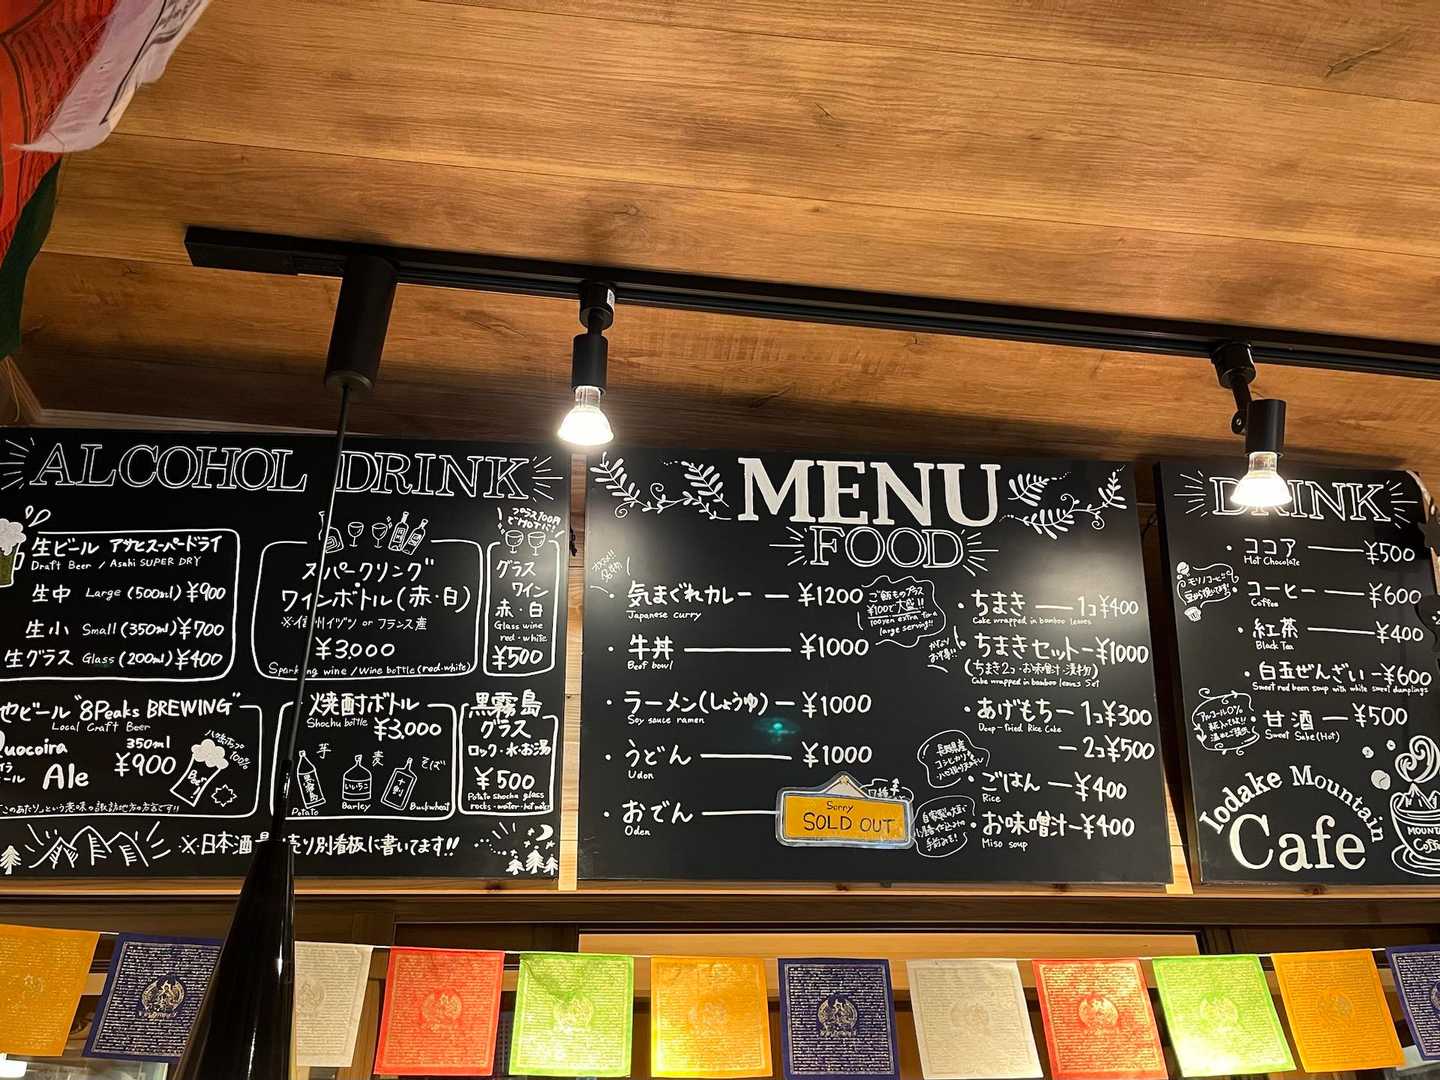 ALCOHOL DRINK
生ビール アサヒスーパードライ
Draft Beer / Asahi SUPER DRY
生中 Large (500ml) ¥900
生小 Small (350ml) ¥700
生グラス Glass (200ml) ¥400
スパークリング
ワインボトル(赤・白)
※信州イヅツ or フランス産
¥3,000
Sparkling wine / Wine bottle (red・white)
プラス100円
でHOTに!
グラス
ワイン
赤・白
Glass wine
red・white
¥500
地ビール "8Peaks BREWING"
Local Craft Beer
350ml
Ale ¥900
Beer
100%
焼酎ボトル
Shochu bottle ¥3,000
芋 麦 そば
Potato Barley Buckwheat
黒霧島
グラス
ロック・水・お湯
¥500
Potato shochu glass
rocks・water・hot water
※日本酒は 売り別看板に書いてます!!
MENU
FOOD
気まぐれカレー ¥1200
Japanese curry
牛丼 ¥1000
Beef bowl
ラーメン(しょうゆ) ¥1000
Soy sauce ramen
うどん ¥1000
Udon
おでん
Oden
Sorry
SOLD OUT
ご飯ものプラス
¥100で大盛!!
100yen extra for a
large serving!!
ちまき 1コ¥400
Cake wrapped in bamboo leaves
ちまきセット ¥1000
(ちまき2コ・お味噌汁・漬物)
Cake wrapped in bamboo leaves Set
あげもち 1コ¥300
Deep-fried Rice Cake
2コ¥500
長野県産
コシヒカリを
ごはん ¥400
Rice
お味噌汁 ¥400
Miso soup
DRINK
ココア ¥500
Hot Chocolate
コーヒー ¥600
Coffee
紅茶 ¥400
Black Tea
白玉ぜんざい ¥600
Sweet red bean soup with white sweet dumplings
アルコール0%
甘酒 ¥500
Sweet Sake (Hot)
Iodake Mountain
Cafe